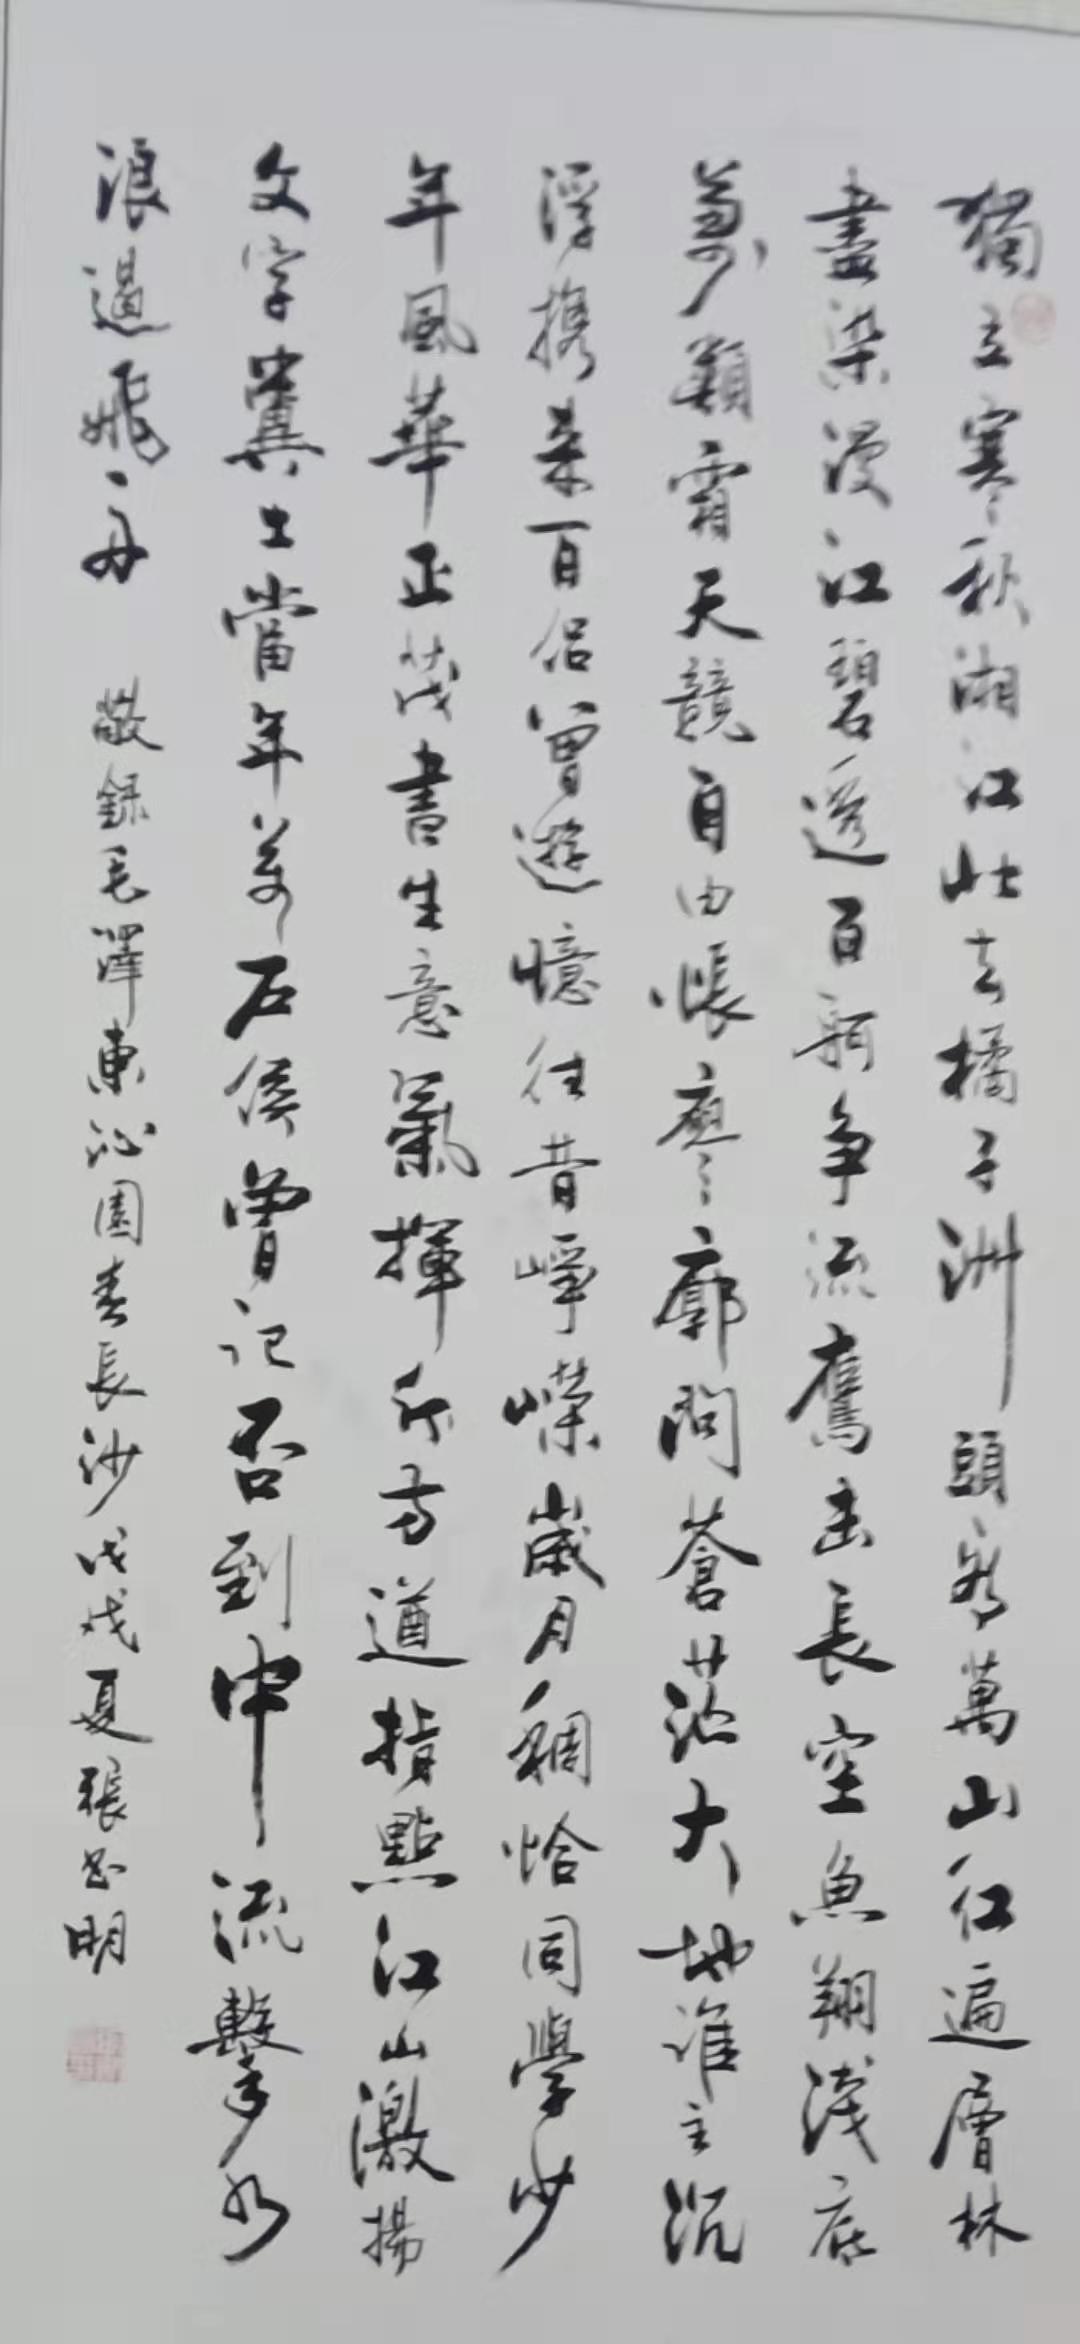 獨立寒秋湘江北去橘子洲頭看萬山紅遍層林
盡染漫江碧透百舸争流鷹击長空魚翔淺底
萬類霜天競自由悵寥廓問蒼茫大地谁主沉
浮携来百侣曾遊憶往昔崢嶸歲月稠恰同學少
年風華正茂書生意氣揮斥方遒指點江山激揚
文字糞土當年萬户侯曾记否到中流擊水
浪遏飛舟
敬録毛澤東沁園春長沙戊戌夏張明